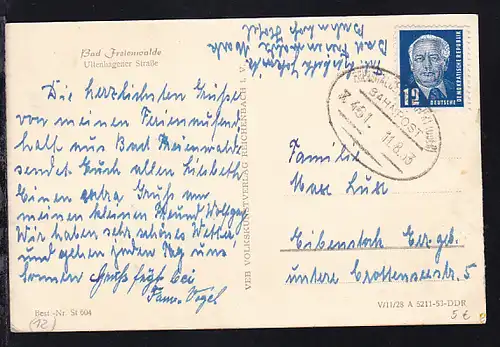 Bad Freienwalde
Uttenhagener Straße
Die herzlichsten Grüße
von meinem Ferienaufent
halt aus Bad Freienwalde
sendet Euch allen Lisbeth
Einen extra Gruß an
meinen kleinen Freund Wolfgang
Wir haben sehr schönes Wetter
und gehen jeden Tag uns
sonnen
Fam. Vogel
Best.-Nr. St 604
(12)
VEB VOLKSKUNSTVERLAG REICHENBACH i. V.
Bad Freienwalde
Bahnhof
12
DEUTSCHE
DEMOKRATISCHE REPUBLIK
BAHNPOST
Z. 451
11.8.53
Familie
Max Lux
Eibenstock Erzgeb.
untere Crottenseestr. 5
V/11/28 A 5211-53-DDR
5 €